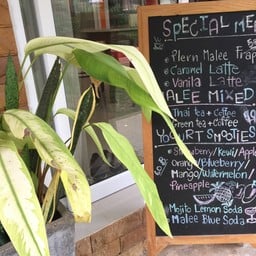 SPECIAL ME
Plern Malee Frap
Caramel Latte
Vanilla Latte
ALEE MIXED
Thai tea+Coffee
Green tea+Coffee
YOGURT SMOOTIES
Strawberry/Kewi/Apple
Orange/Blueberry/
Mango/Watermelon/
Pineapple
Mojito Lemon Soda
Malee Blue Soda